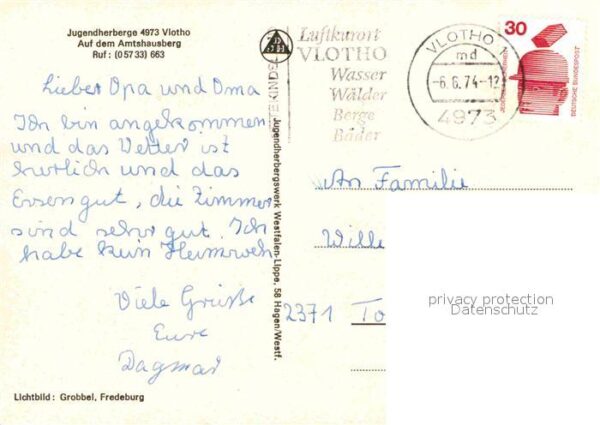 Jugendherberge 4973 Vlotho
Auf dem Amtshausberg
Ruf: (05733) 663
Lieber Opa und Oma
Ich bin angekommen
und das Vetter ist
herlich und das
Essen gut, die Zimmer
sind sehr gut. Ich
habe kein Heimweh
Viele Grüße
Eure
Dagmar
Lichtbild: Grobbel, Fredeburg
Jugendherbergswerk Westfalen-Lippe, 58 Hagen/Westf.
Luftkurort
VLOTHO
Wasser
Wälder
Berge
Bäder
VLOTHO 1
md
-6.6.74-12
4973
30
DEUTSCHE BUNDESPOST
An Familie
Wille
2371 To
privacy protection
Datenschutz